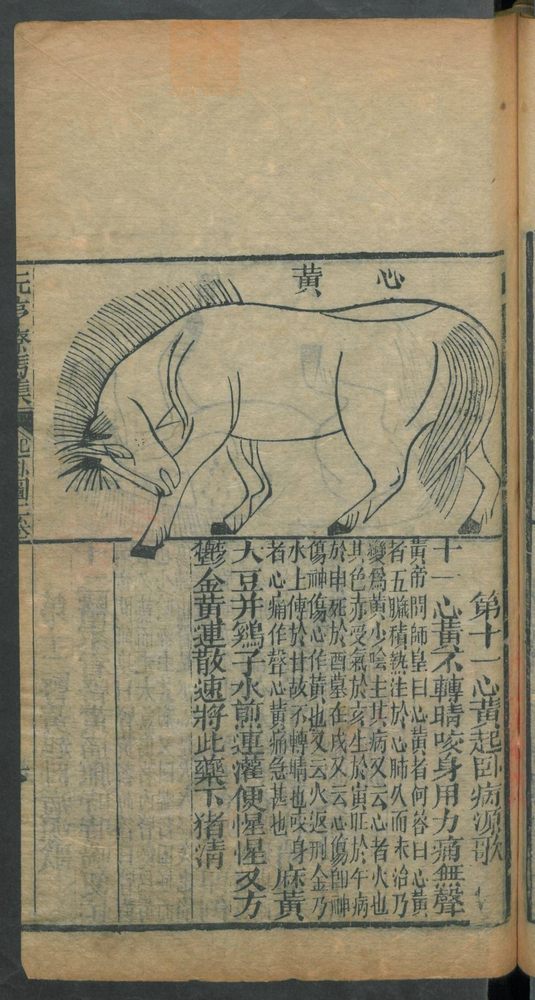 心黃
第十一心黃起臥病源歌
十一心黃不轉睛咬身用力痛無聲
黃帝問師皇曰心黃者何答曰心黃
者五臟積熱注於心肺久而未治乃
變爲黃少陰主其病又云心者火也
其色赤受氣於亥生於寅旺於午病
於申死於酉墓在戌又云心傷卽神
傷神傷心作黃也又云火返刑金乃
水上傳於甘故不轉睛也咬身
者心痛作聲心黃痛急甚也
麻黃
大豆幷鷄子水煎連灌便惺惺又方
鬱金黃連散速將此藥下猪淸
元亨療馬集
起臥圖